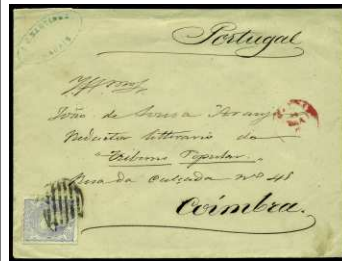 Portugal
João de Sousa Araujo
Redactor litterario do
"Tribuno Popular"
Rua da Calçada nº 48
Coimbra.